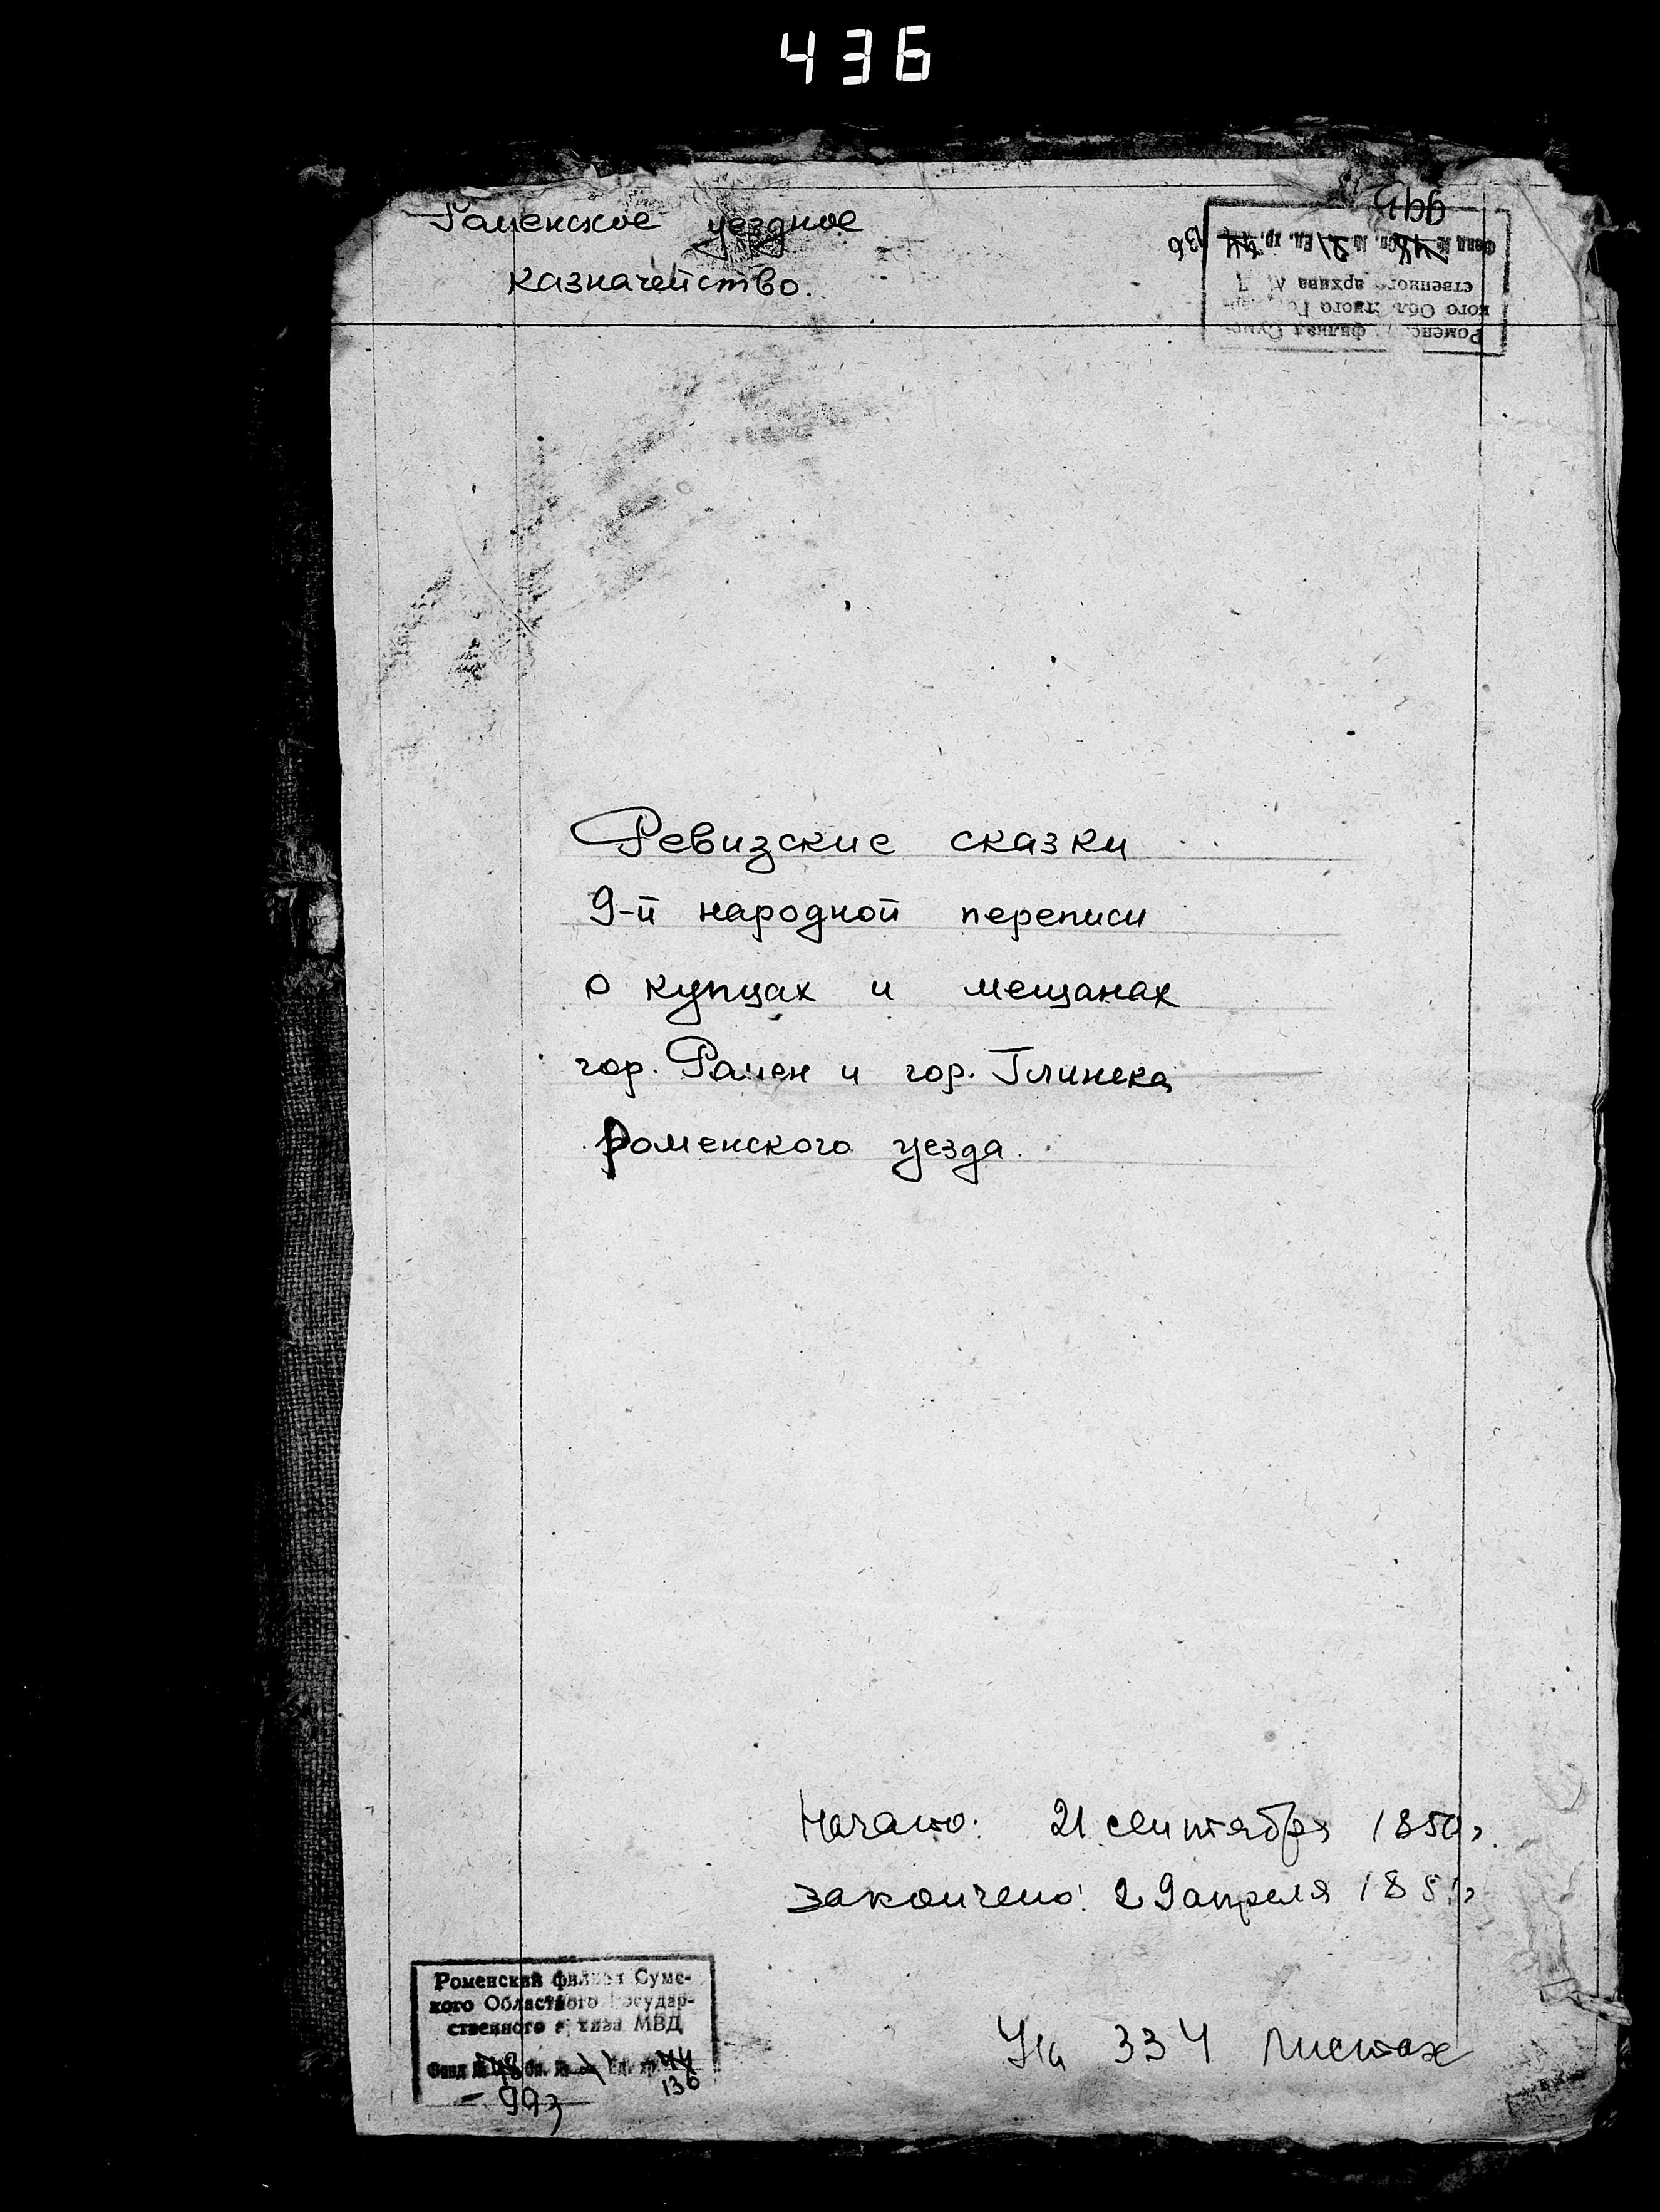 436
Роменское уездное
казначейство.
Роменс филиал Сумс
кого Обл тного Го
ственного архива
Фонд № 48 Оп. № Ед. хр. 136
993
Ревизские сказки
9-й народной переписи
о купцах и мещанах
гор. Ромен и гор. Глинска
Роменского уезда.
Начато: 21 сентября 1850 г.
Закончено: 29 апреля 1851 г.
На 334 листах
Роменский филиал Сумс-
кого Областного Государ-
ственного архива МВД
Фонд № 48 Оп. № Ед. хр. 44
993 136